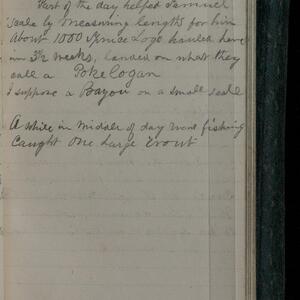 Part of the day helped Samuel
Scale by measuring lengths for him
About 1000 Spruce Logs hauled here
in 3½ weeks, landed on what they
call a Pokelogan
I suppose a Bayou on a small scale
A while in middle of day went fishing
Caught One Large Trout